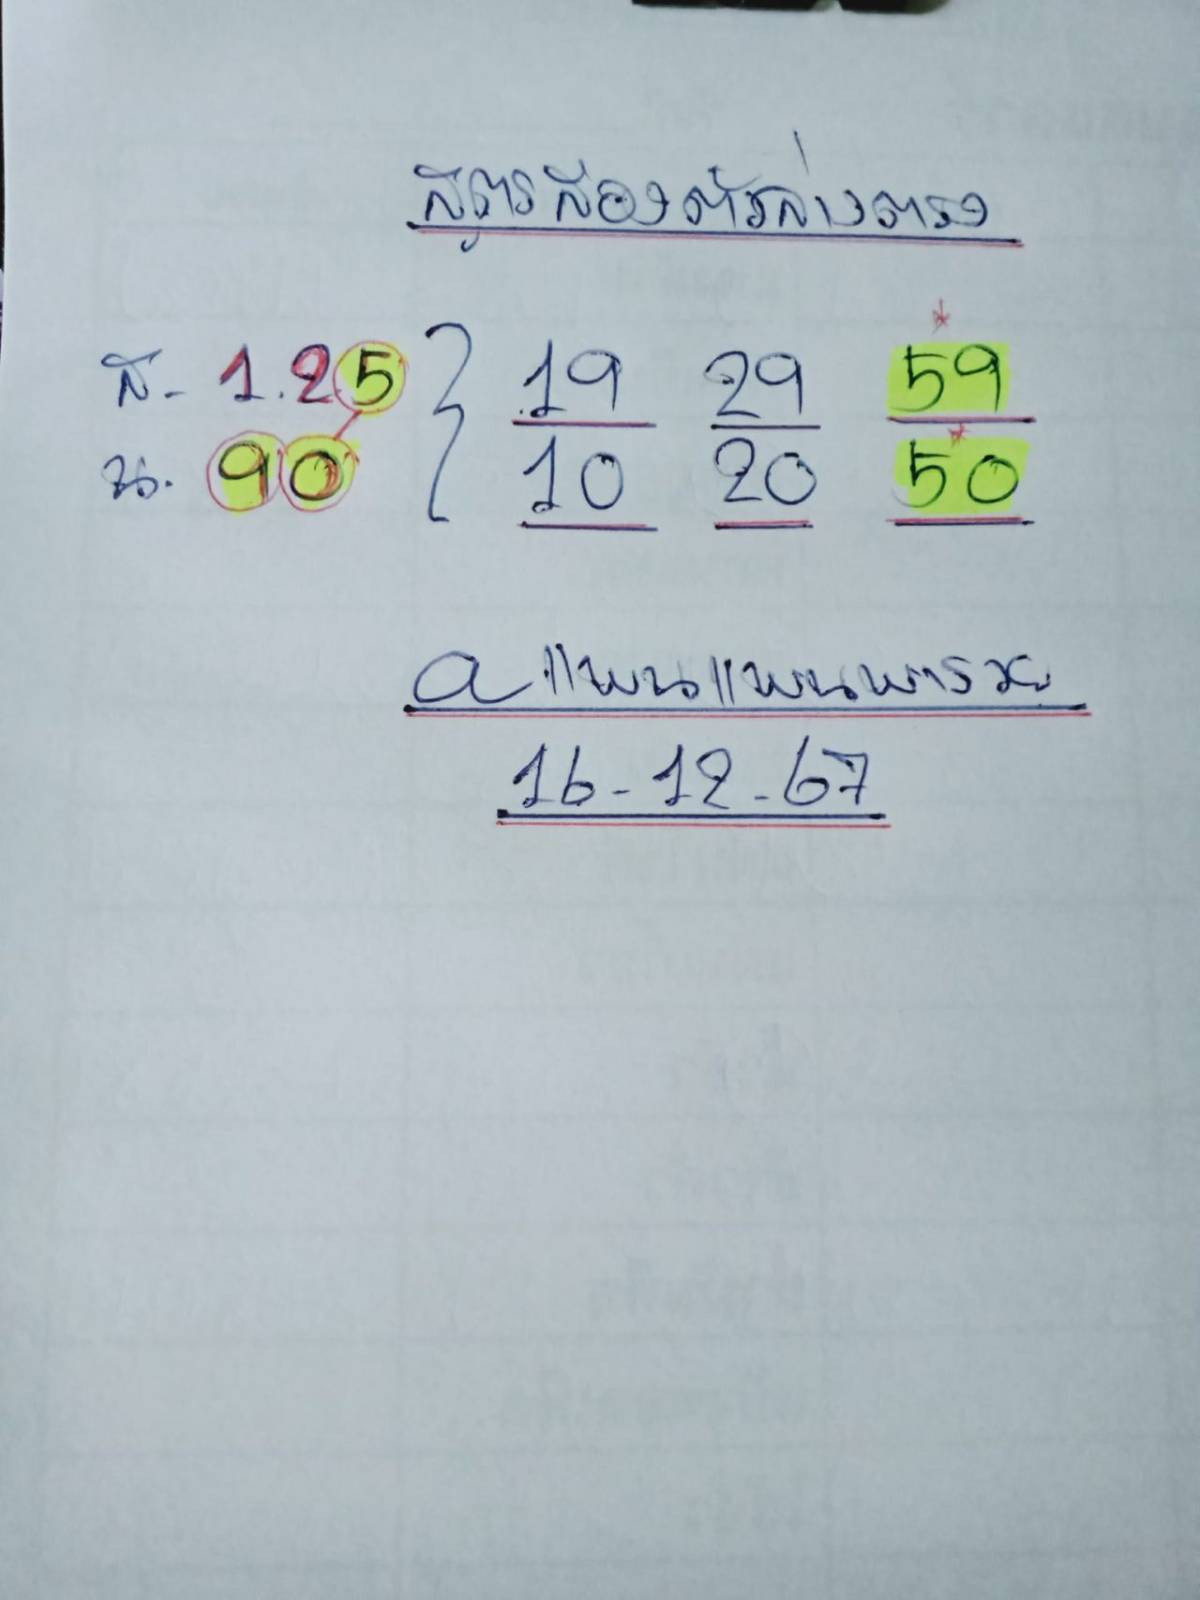 สูตรสองตัวล่างตรง
ส- 1.2.5 19 29 59
น. 90 10 20 50
a แพนแพนพารวย
16-12-67